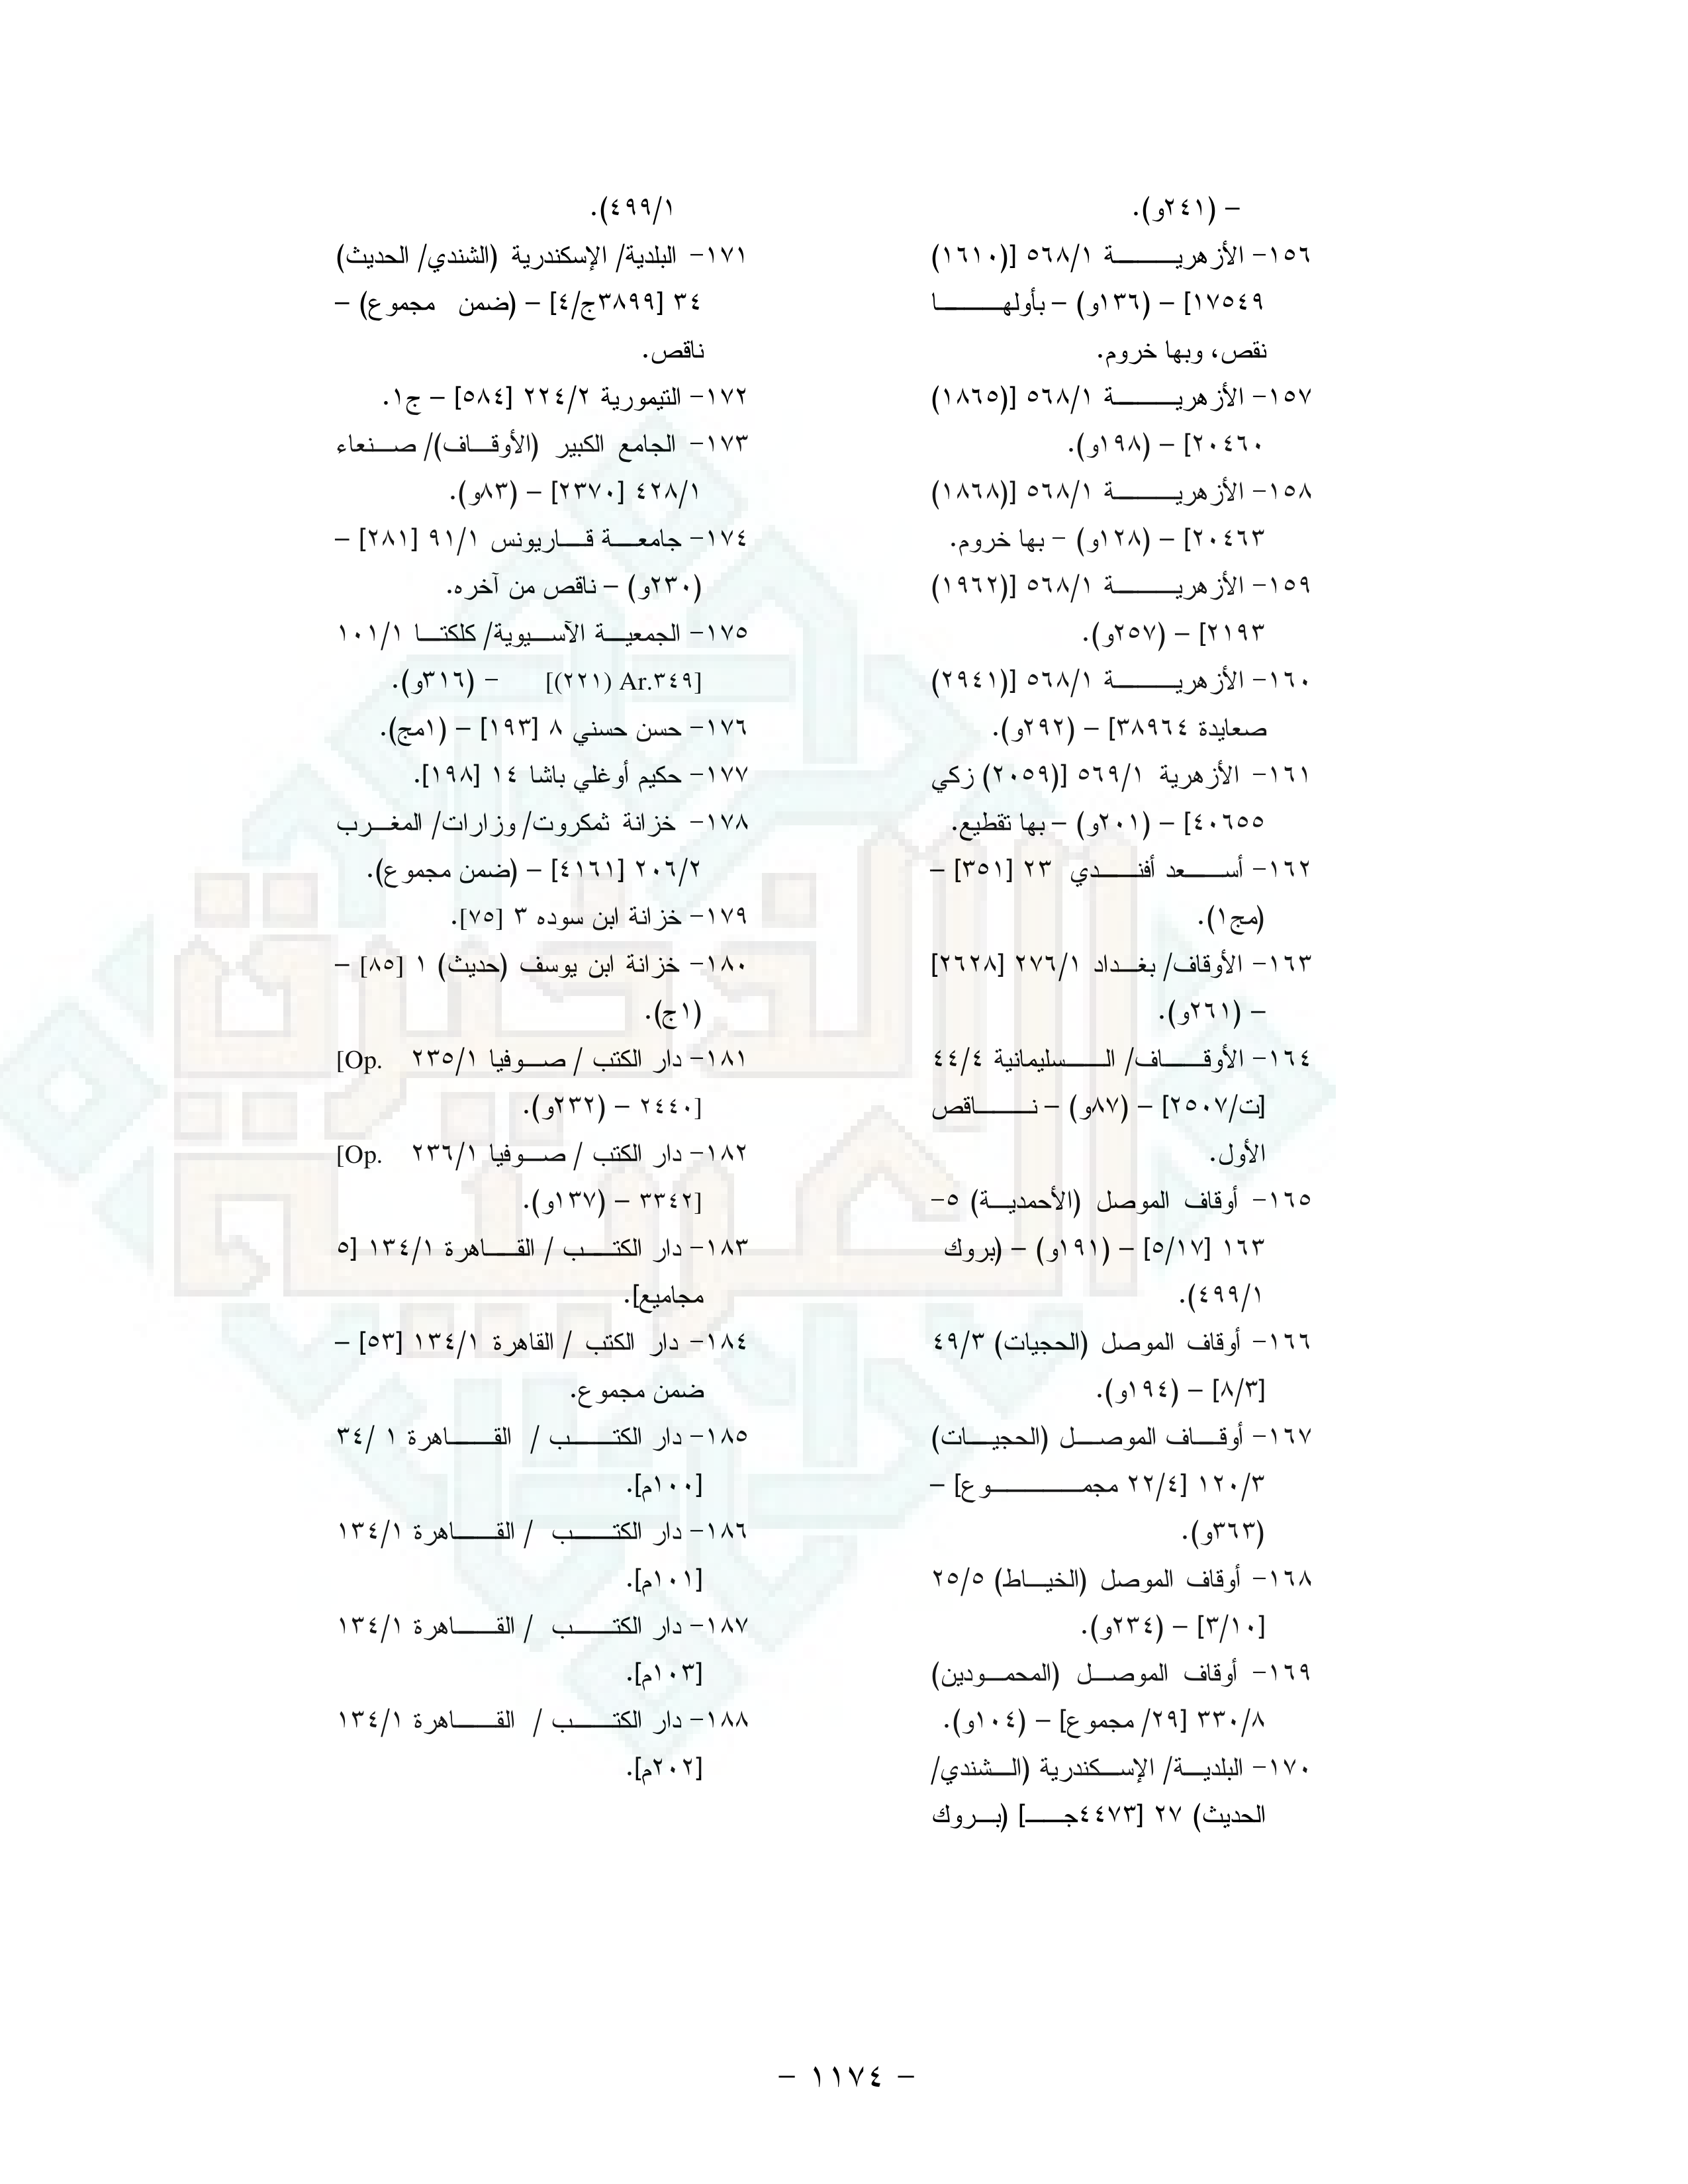 – (٢٤١و).
١٥٦– الأزهرية ٥٦٨/١ [(١٦١٠)
١٧٥٤٩] – (١٣٦و) – بأولها
نقص، وبها خروم.
١٥٧– الأزهرية ٥٦٨/١ [(١٨٦٥)
٢٠٤٦٠] – (١٩٨و).
١٥٨– الأزهرية ٥٦٨/١ [(١٨٦٨)
٢٠٤٦٣] – (١٢٨و) – بها خروم.
١٥٩– الأزهرية ٥٦٨/١ [(١٩٦٢)
٢١٩٣] – (٢٥٧و).
١٦٠– الأزهرية ٥٦٨/١ [(٢٩٤١)
صعايدة ٣٨٩٦٤] – (٢٩٢و).
١٦١– الأزهرية ٥٦٩/١ [(٢٠٥٩) زكي
٤٠٦٥٥] – (٢٠١و) – بها تقطيع.
١٦٢– أسعد أفندي ٢٣ [٣٥١] –
(مج١).
١٦٣– الأوقاف/ بغداد ٢٧٦/١ [٢٦٢٨]
– (٢٦١و).
١٦٤– الأوقاف/ السليمانية ٤٤/٤
[ت/٢٥٠٧] – (٨٧و) – ناقص
الأول.
١٦٥– أوقاف الموصل (الأحمدية) ٥–
١٦٣ [٥/١٧] – (١٩١و) – (بروك
٤٩٩/١).
١٦٦– أوقاف الموصل (الحجيات) ٤٩/٣
[٨/٣] – (١٩٤و).
١٦٧– أوقاف الموصل (الحجيات)
١٢٠/٣ [٢٢/٤ مجموع] –
(٣٦٣و).
١٦٨– أوقاف الموصل (الخياط) ٢٥/٥
[٣/١٠] – (٢٣٤و).
١٦٩– أوقاف الموصل (المحمودين)
٣٣٠/٨ [٢٩/ مجموع] – (١٠٤و).
١٧٠– البلدية/ الإسكندرية (الشندي/
الحديث) ٢٧ [٤٤٧٣جـ] (بروك
٤٩٩/١).
١٧١– البلدية/ الإسكندرية (الشندي/ الحديث)
٣٤ [٣٨٩٩ج/٤] – (ضمن مجموع) –
ناقص.
١٧٢– التيمورية ٢٢٤/٢ [٥٨٤] – ج١.
١٧٣– الجامع الكبير (الأوقاف)/ صنعاء
٤٢٨/١ [٢٣٧٠] – (٨٣و).
١٧٤– جامعة قاريونس ٩١/١ [٢٨١] –
(٢٣٠و) – ناقص من آخره.
١٧٥– الجمعية الآسيوية/ كلكتا ١٠١/١
[(٢٢١) Ar.٣٤٩] – (٣١٦و).
١٧٦– حسن حسني ٨ [١٩٣] – (١مج).
١٧٧– حكيم أوغلي باشا ١٤ [١٩٨].
١٧٨– خزانة ثمكروت/ وزارات/ المغرب
٢٠٦/٢ [٤١٦١] – (ضمن مجموع).
١٧٩– خزانة ابن سوده ٣ [٧٥].
١٨٠– خزانة ابن يوسف (حديث) ١ [٨٥] –
(١ج).
١٨١– دار الكتب / صوفيا ٢٣٥/١ [Op.
٢٤٤٠] – (٢٣٢و).
١٨٢– دار الكتب / صوفيا ٢٣٦/١ [Op.
٣٣٤٢] – (١٣٧و).
١٨٣– دار الكتب / القاهرة ١٣٤/١ [٥
مجاميع].
١٨٤– دار الكتب / القاهرة ١٣٤/١ [٥٣] –
ضمن مجموع.
١٨٥– دار الكتب / القاهرة ١ /٣٤
[١٠٠م].
١٨٦– دار الكتب / القاهرة ١٣٤/١
[١٠١م].
١٨٧– دار الكتب / القاهرة ١٣٤/١
[١٠٣م].
١٨٨– دار الكتب / القاهرة ١٣٤/١
[٢٠٢م].
– ١١٧٤ –